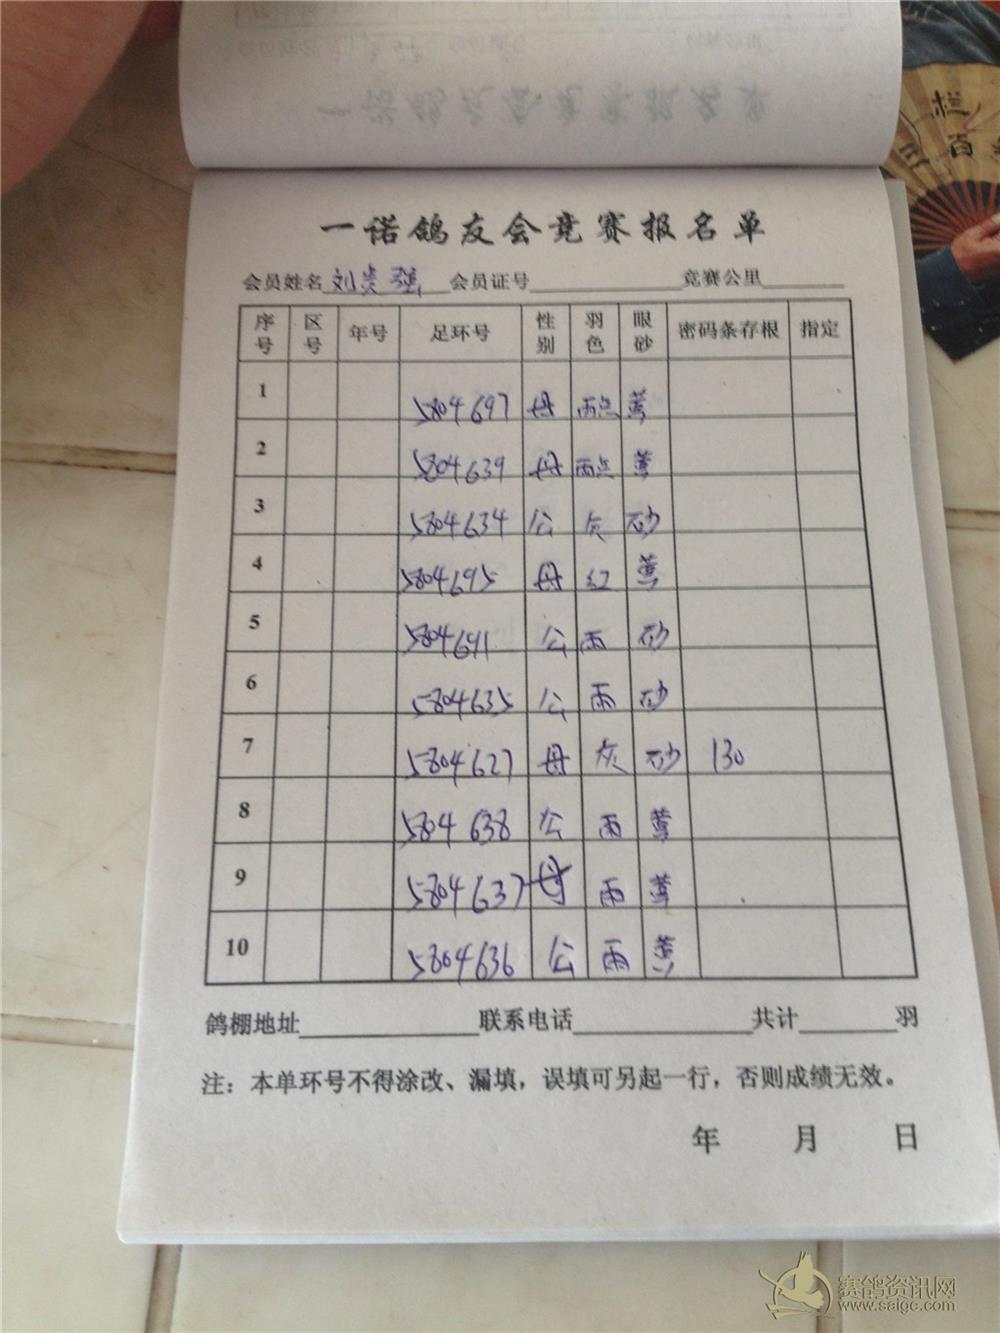 一诺鸽友会竞赛报名单
会员姓名 刘贵强 会员证号 竞赛公里
序号 区号 年号 足环号 性别 羽色 眼砂 密码条存根 指定
1 5804697 母 雨点 黄
2 5804639 母 雨点 黄
3 5804634 公 灰 砂
4 5804695 母 红 黄
5 5804691 公 雨 砂
6 5804635 公 雨 砂
7 5804627 母 灰 砂 130
8 5804638 公 雨 黄
9 5804637 母 雨 黄
10 5804636 公 雨 黄
鸽棚地址 联系电话 共计 羽
注：本单环号不得涂改、漏填，误填可另起一行，否则成绩无效。
年 月 日
赛鸽资讯网
www.saigc.com